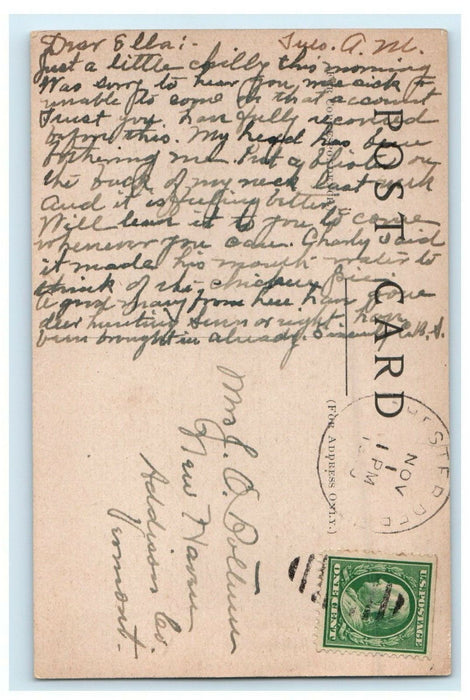 Dear Ella:- Tues. A.M.
Just a little chilly this morning
Was sorry to hear you was sick &
unable to come on that account
Trust you have fully recovered
before this. My head has been
bothering me. Put a blister on
the back of my neck last week
and it is feeling better.
Will leave it to you to come
whenever you can. Charly said
it made his mouth water to
think of the chicken pie.
A good many from here have gone
deer hunting. Seven or eight have
been brought in already. Sincerely
POST CARD
(FOR ADDRESS ONLY.)
NOV
1
1 PM
U.S. POSTAGE
ONE CENT
Mrs. J. O.
New Haven
Addison Co.
Vermont.